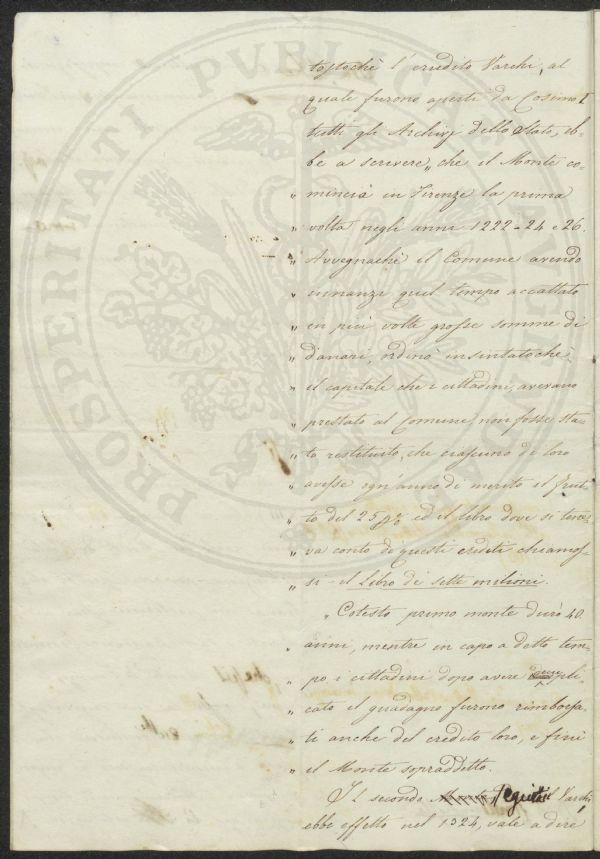 PROSPERITATI PVBLICAE
tostochè l'erudito Varchi, al
quale furono aperti da Cosimo I
tutti gli Archivj dello Stato, eb-
be a scrivere „ che il Monte co-
„ minciò in Firenze la prima
„ volta negli anni 1222-24 e 26.
„ Avvegnachè il Comune avendo
„ innanzi quel tempo accattato
„ in più volte grosse somme di
„ danari, ordinò insintatochè,
„ il capitale che i cittadini avevano
„ prestato al Comune, non fosse sta-
„ to restituito, che ciascuno di loro
„ avesse ogn'anno di merito il frut-
„ to del 25 p% ed il libro dove si tene-
„ va conto di questi crediti chiamos-
„ si il Libro di sette milioni.
„ Cotesto primo monte durò 40.
„ anni, mentre in capo a detto tem-
„ po i cittadini dopo avere pli-
„ cato il guadagno furono rimborsa-
„ ti anche del credito loro, e finì
„ il Monte sopraddetto.
Il secondo Monte, seguita il Varchi
ebbe effetto nel 1324, vale a dire